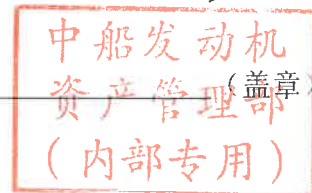 中船发动机
资产管理部
（盖章）
（内部专用）